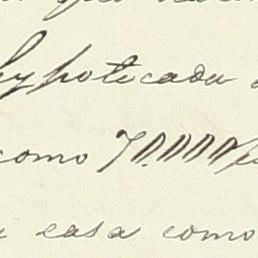 que
hypotecada
como 70.000
casa como